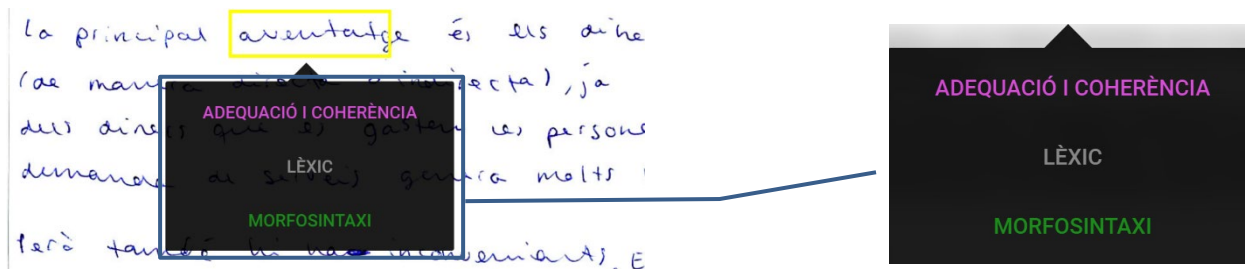 La principal aventatge és els dine
(de manera directa o indirecta), ja
dels diners que es gasten les persone
demanda de serveis genera molts
Però també hi ha inconvenients. E
ADEQUACIÓ I COHERÈNCIA
LÈXIC
MORFOSINTAXI
ADEQUACIÓ I COHERÈNCIA
LÈXIC
MORFOSINTAXI